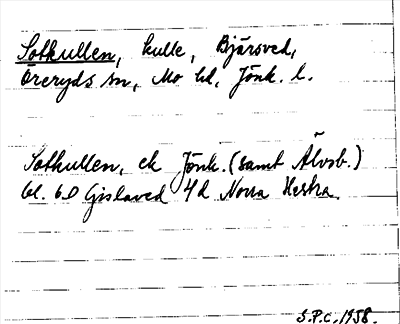 Sotkullen, kulle, Bjärsved,
Öreryds sn, Mo hd, Jönk. l.
Sotkullen, ek Jönk. (samt Älvsb.)
bl. 60 Gislaved 4d Norra Hestra.
S.P.C. 1958.